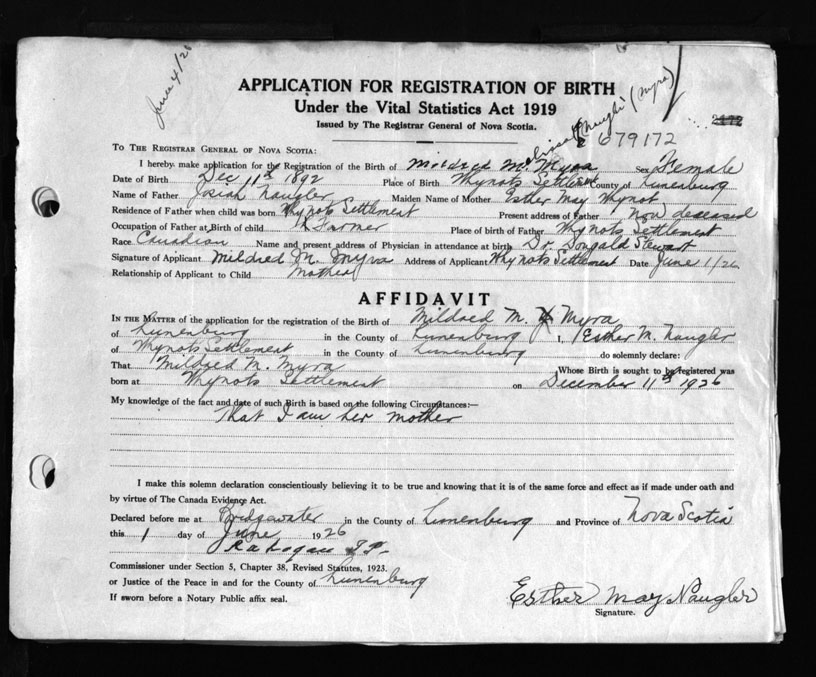 June 4/26
APPLICATION FOR REGISTRATION OF BIRTH
Under the Vital Statistics Act 1919
Issued by The Registrar General of Nova Scotia.
Naugler (Myra)
2172
679172
TO THE REGISTRAR GENERAL OF NOVA SCOTIA:
I hereby make application for the Registration of the Birth of Mildred M. Myra Sex Female
Date of Birth Dec 11th 1892 Place of Birth Whynots Settlement County of Lunenburg
Name of Father Josiah Naugler Maiden Name of Mother Esther May Whynot
Residence of Father when child was born Whynots Settlement Present address of Father now deceased
Occupation of Father at Birth of child Farmer Place of birth of Father Whynots Settlement
Race Canadian Name and present address of Physician in attendance at birth Dr. Dongald Stewart
Signature of Applicant Mildred M. Myra Address of Applicant Whynots Settlement Date June 1/26
Relationship of Applicant to Child Mother
AFFIDAVIT
IN THE MATTER of the application for the registration of the Birth of Mildred M. Myra
of Lunenburg in the County of Lunenburg I, Esther M. Naugler
of Whynots Settlement in the County of Lunenburg do solemnly declare:
That Mildred M. Myra Whose Birth is sought to be registered was
born at Whynots Settlement on December 11th 1926
My knowledge of the fact and date of such Birth is based on the following Circumstances:—
That I am her mother
I make this solemn declaration conscientiously believing it to be true and knowing that it is of the same force and effect as if made under oath and
by virtue of The Canada Evidence Act.
Declared before me at Bridgewater in the County of Lunenburg and Province of Nova Scotia
this 1 day of June 1926
J.P.
Commissioner under Section 5, Chapter 38, Revised Statutes, 1923.
or Justice of the Peace in and for the County of Lunenburg
If sworn before a Notary Public affix seal.
Esther May Naugler
Signature.